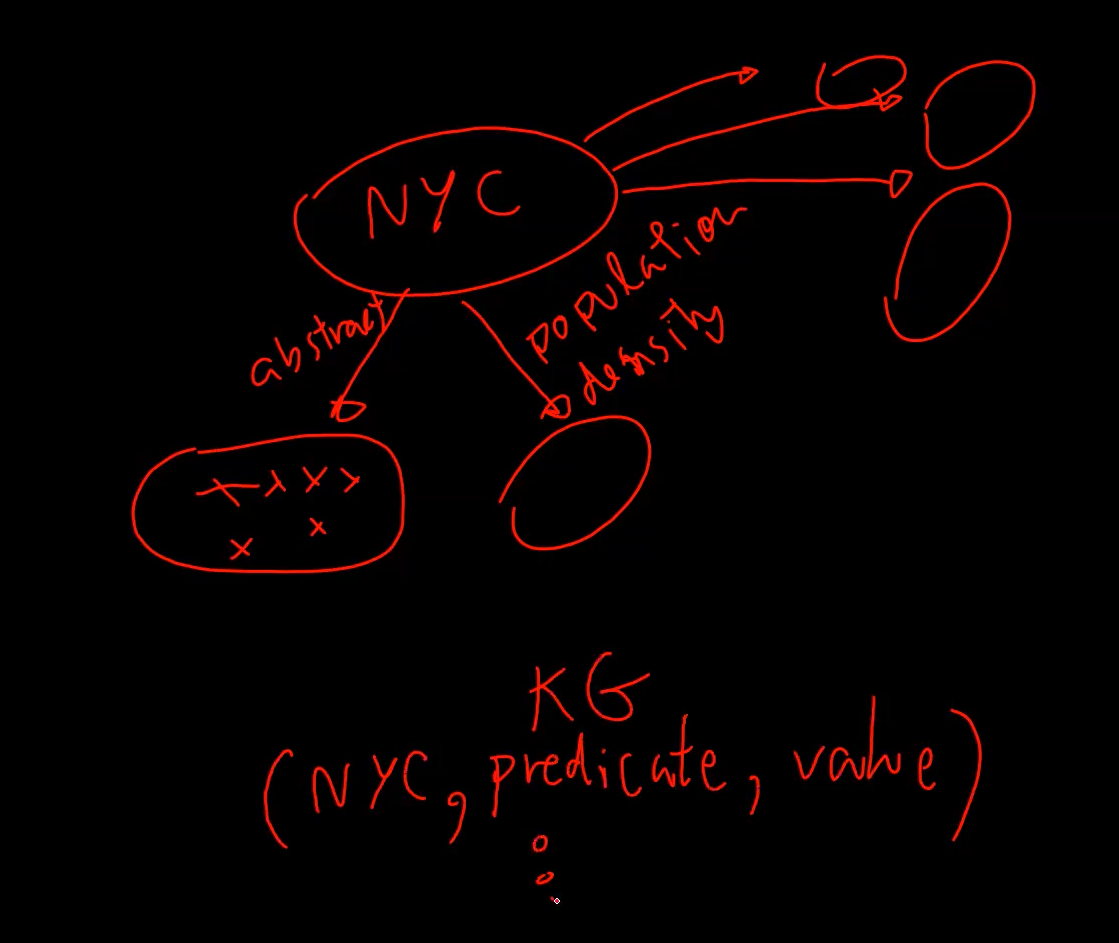 NYC
abstract
population
density
x x x x
x x
KG
(NYC, predicate, value)